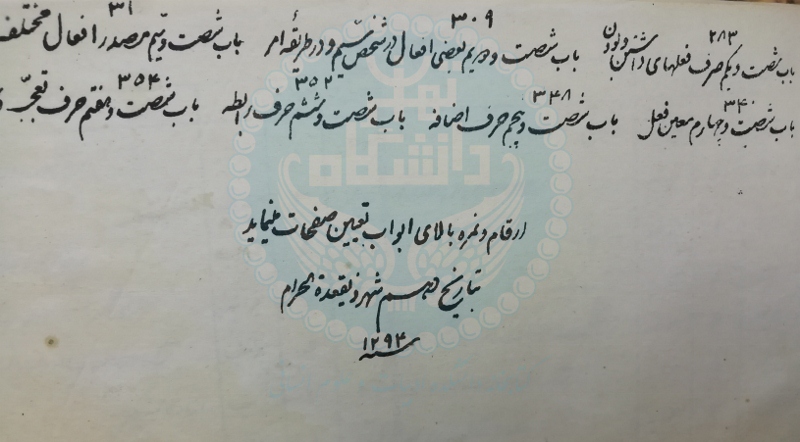 ۲۸۳ ۳۰۹ ۳۱
باب شصت و یکم صرف فعلهای داشتن و بودن باب شصت و دویم بعضی افعال در شخص سیم و در طریقه امر باب شصت و سیم مصدر افعال مختلف
۳۴۰ ۳۴۸ ۳۵۲ ۳۵۴
باب شصت و چهارم معین فعل باب شصت و پنجم حرف اضافه باب شصت و ششم حرف رابطه باب شصت و هفتم حرف تعجب
ارقام و نمره بالای ابواب تعیین صفحات مینماید
بتاریخ دهم شهر ذیقعدة الحرام
سنه ۱۲۹۴
دانشگاه